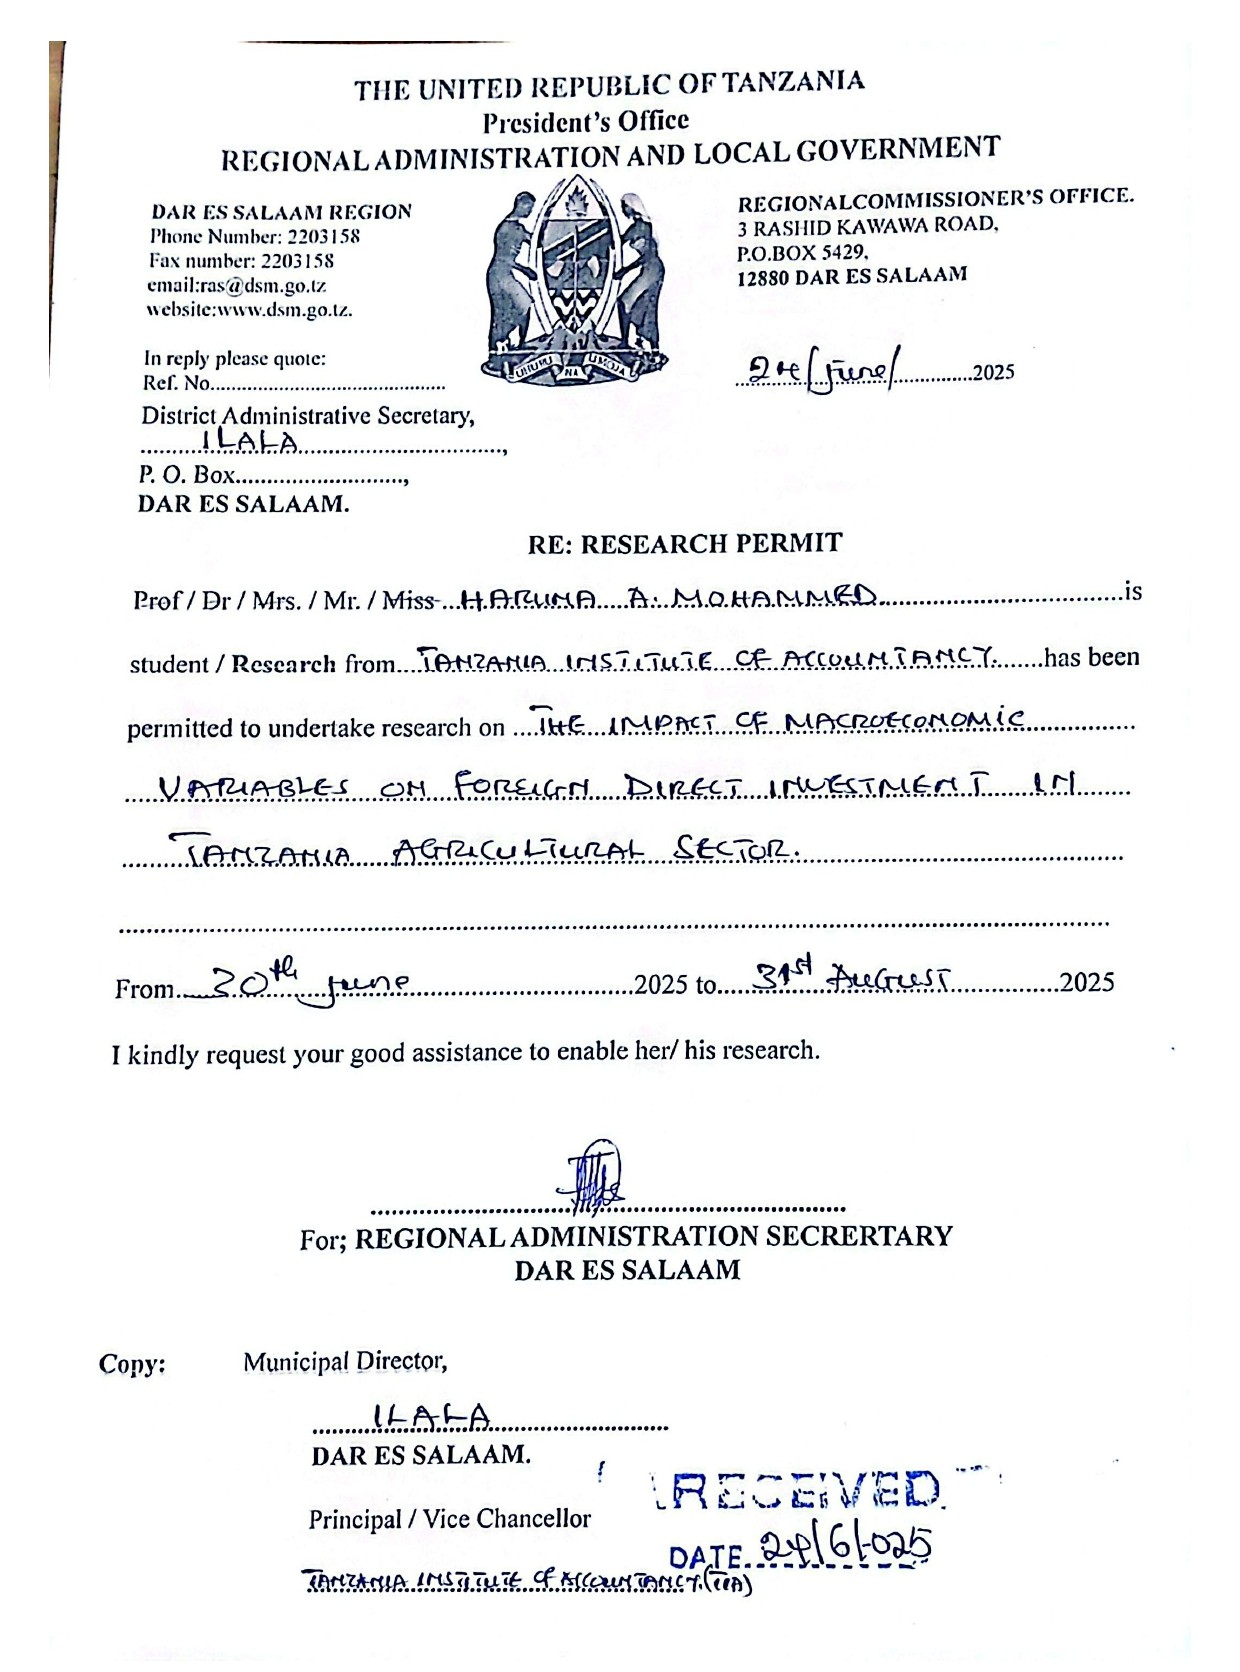 THE UNITED REPUBLIC OF TANZANIA
President's Office
REGIONAL ADMINISTRATION AND LOCAL GOVERNMENT
DAR ES SALAAM REGION
Phone Number: 2203158
Fax number: 2203158
email:ras@dsm.go.tz
website:www.dsm.go.tz.
REGIONALCOMMISSIONER'S OFFICE.
3 RASHID KAWAWA ROAD,
P.O.BOX 5429,
12880 DAR ES SALAAM
UHURU NA UMOJA
In reply please quote:
Ref. No..........................................
24/June/..............2025
District Administrative Secretary,
ILALA,
P. O. Box..........................,
DAR ES SALAAM.
RE: RESEARCH PERMIT
Prof / Dr / Mrs. / Mr. / Miss- HARUNA A. MOHAMMED is
student / Research from TANZANIA INSTITUTE OF ACCOUNTANCY has been
permitted to undertake research on THE IMPACT OF MACROECONOMIC
VARIABLES ON FOREIGN DIRECT INVESTMENT IN
TANZANIA AGRICULTURAL SECTOR.
From 30th June 2025 to 31st August 2025
I kindly request your good assistance to enable her/ his research.
For; REGIONAL ADMINISTRATION SECRERTARY
DAR ES SALAAM
Copy: Municipal Director,
ILALA
DAR ES SALAAM.
Principal / Vice Chancellor
TANZANIA INSTITUTE OF ACCOUNTANCY (TIA)
RECEIVED
DATE 24/6/025